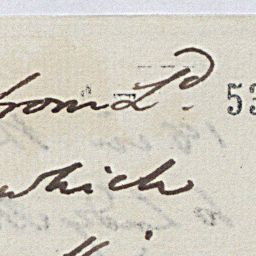 from Ld. 53
which